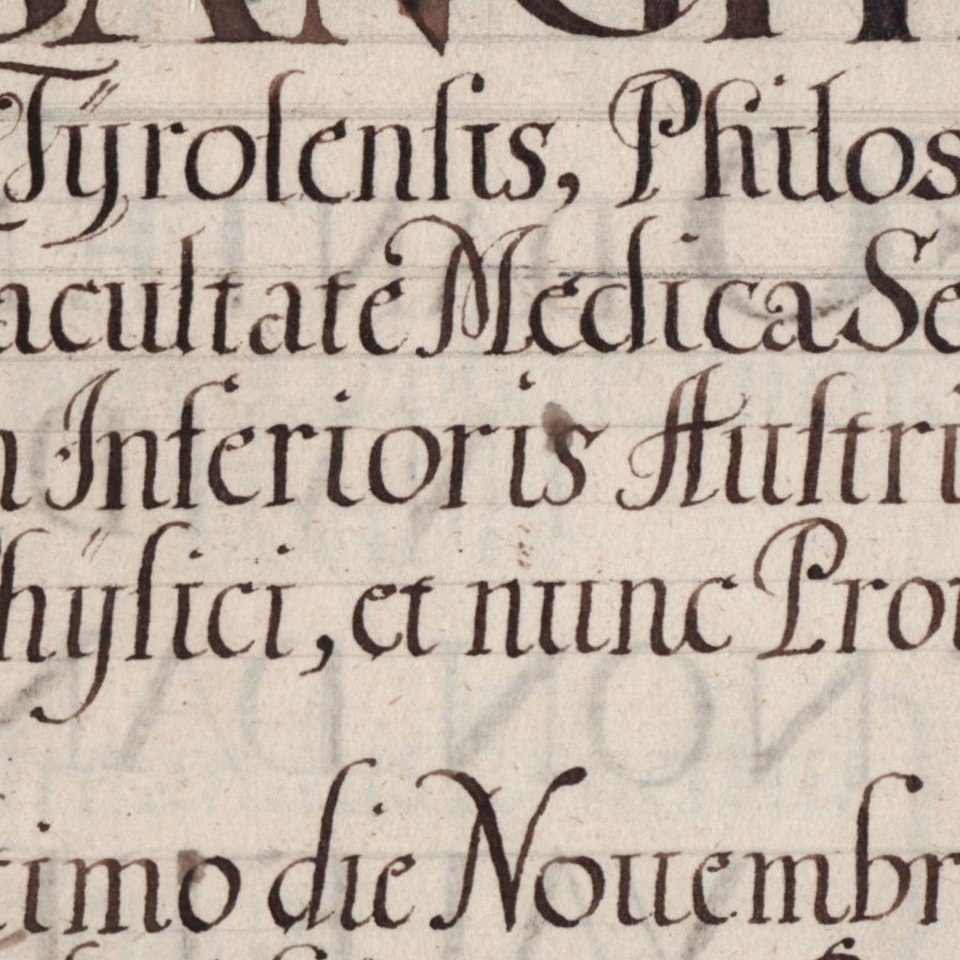 Tÿrolenſis, Philos
acultate Medica Se
n Inferioris Auſtri
hÿſici, et nunc Prou
timo die Nouembr